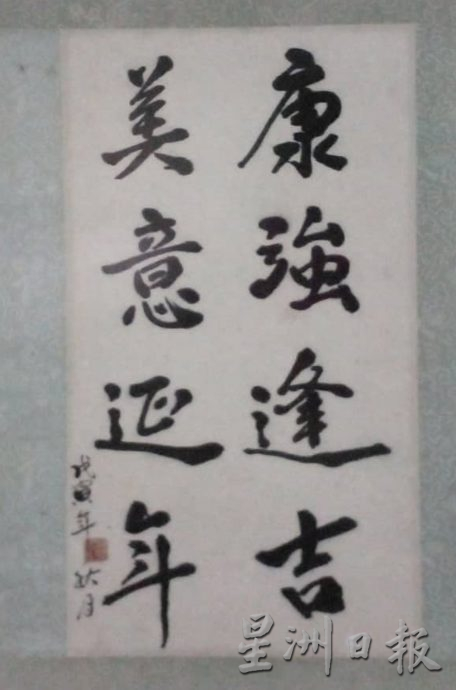 康強逢吉
美意延年
戊寅年
秋月
星洲日報